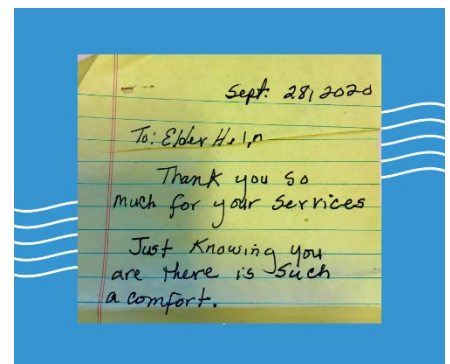 Sept. 28, 2020
To: Elder Help
Thank you so
much for your services
Just Knowing you
are there is such
a comfort.